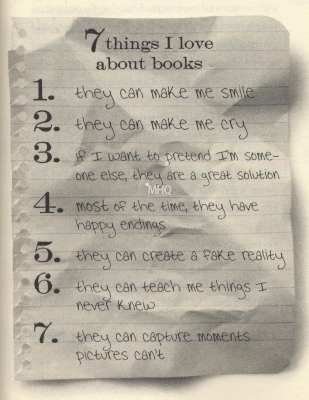 7 things I love
about books
1. they can make me smile
2. they can make me cry
3. if I want to pretend I'm some-
one else, they are a great solution
MHQ
4. most of the time, they have
happy endings
5. they can create a fake reality
6. they can teach me things I
never knew
7. they can capture moments
pictures can't